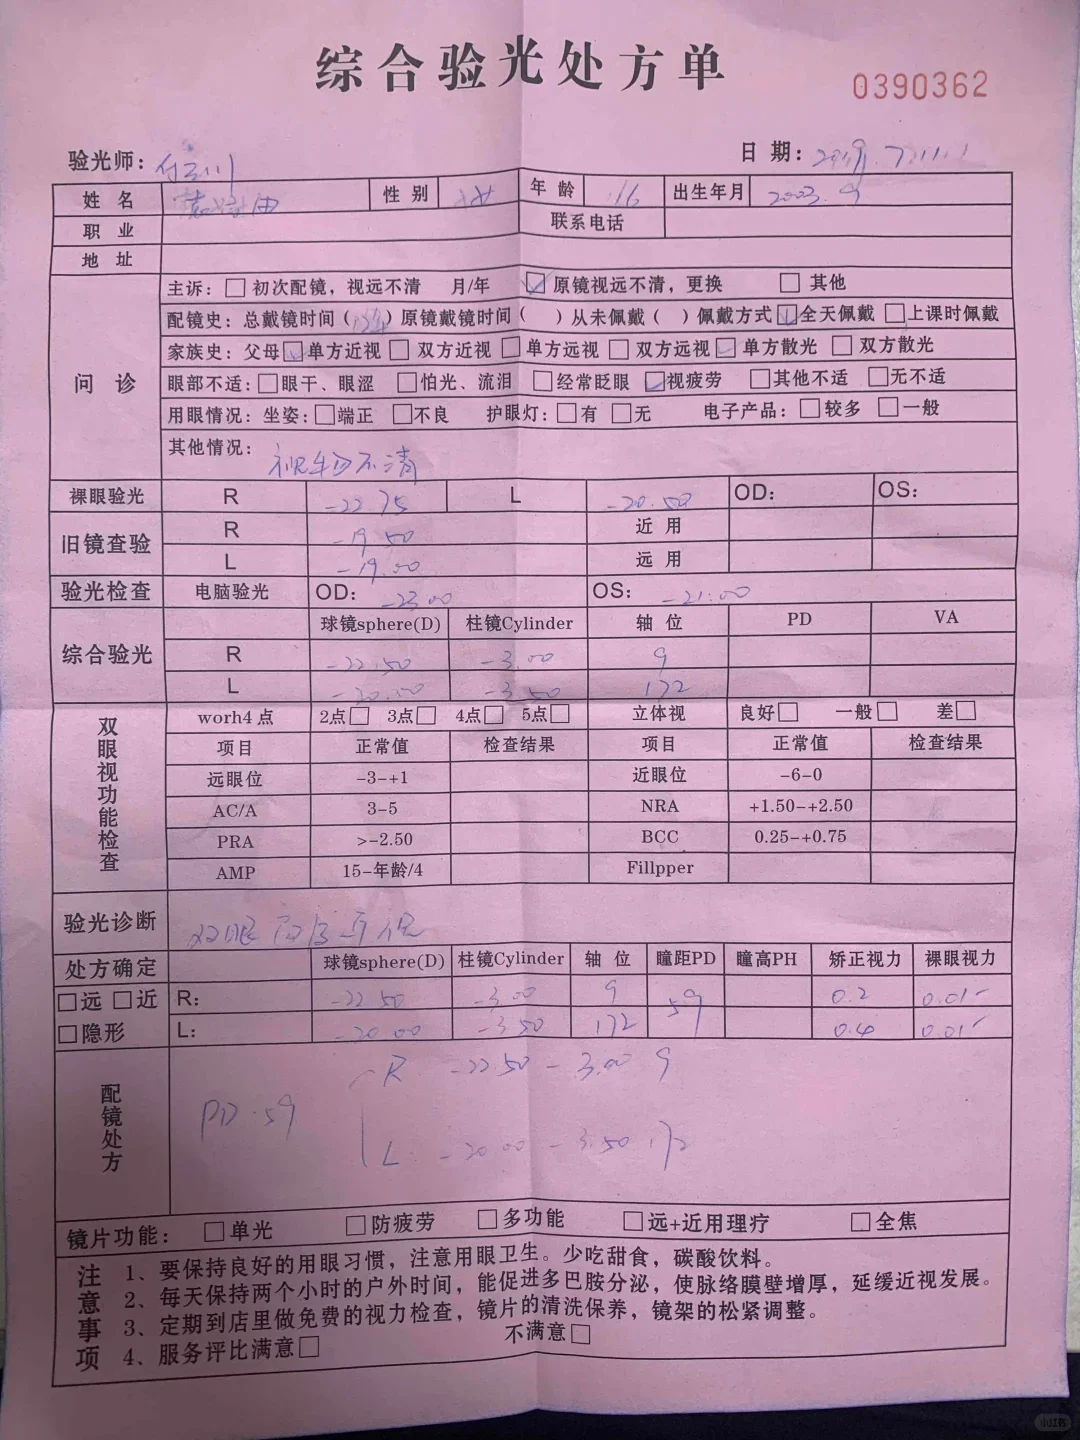 综合验光处方单
0390362
验光师：
日 期：
姓 名 性 别 女 年 龄 16 出生年月 2003.9
职 业 联系电话
地 址
问 诊
主诉：□初次配镜，视远不清 月/年 ☑原镜视远不清，更换 □其他
配镜史：总戴镜时间（ ）原镜戴镜时间（ ）从未佩戴（ ）佩戴方式☑全天佩戴 □上课时佩戴
家族史：父母☑单方近视 □双方近视 □单方远视 □双方远视 ☑单方散光 □双方散光
眼部不适：□眼干、眼涩 □怕光、流泪 □经常眨眼 ☑视疲劳 □其他不适 □无不适
用眼情况：坐姿：□端正 □不良 护眼灯：□有 □无 电子产品：□较多 □一般
其他情况：视物不清
裸眼验光 R -22.75 L -20.50 OD： OS：
旧镜查验 R -19.50 近 用
L -19.00 远 用
验光检查 电脑验光 OD： -23.00 OS： -21.00
综合验光 球镜sphere(D) 柱镜Cylinder 轴 位 PD VA
R -22.50 -3.00 9
L -20.00 -3.50 172
双眼视功能检查
worh4 点 2点□ 3点□ 4点□ 5点□ 立体视 良好□ 一般□ 差□
项目 正常值 检查结果 项目 正常值 检查结果
远眼位 -3-+1 近眼位 -6-0
AC/A 3-5 NRA +1.50-+2.50
PRA >-2.50 BCC 0.25-+0.75
AMP 15-年龄/4 Fillpper
验光诊断 双眼
处方确定 球镜sphere(D) 柱镜Cylinder 轴 位 瞳距PD 瞳高PH 矫正视力 裸眼视力
□远 □近 R： -22.50 -3.00 9 59 0.2 0.01
□隐形 L： -20.00 -3.50 172 0.4 0.01
配镜处方
R -22.50 -3.00 9
PD.59
L -20.00 -3.50 172
镜片功能： □单光 □防疲劳 □多功能 □远+近用理疗 □全焦
注意事项
1、要保持良好的用眼习惯，注意用眼卫生。少吃甜食，碳酸饮料。
2、每天保持两个小时的户外时间，能促进多巴胺分泌，使脉络膜壁增厚，延缓近视发展。
3、定期到店里做免费的视力检查，镜片的清洗保养，镜架的松紧调整。
4、服务评比满意□ 不满意□
小红书